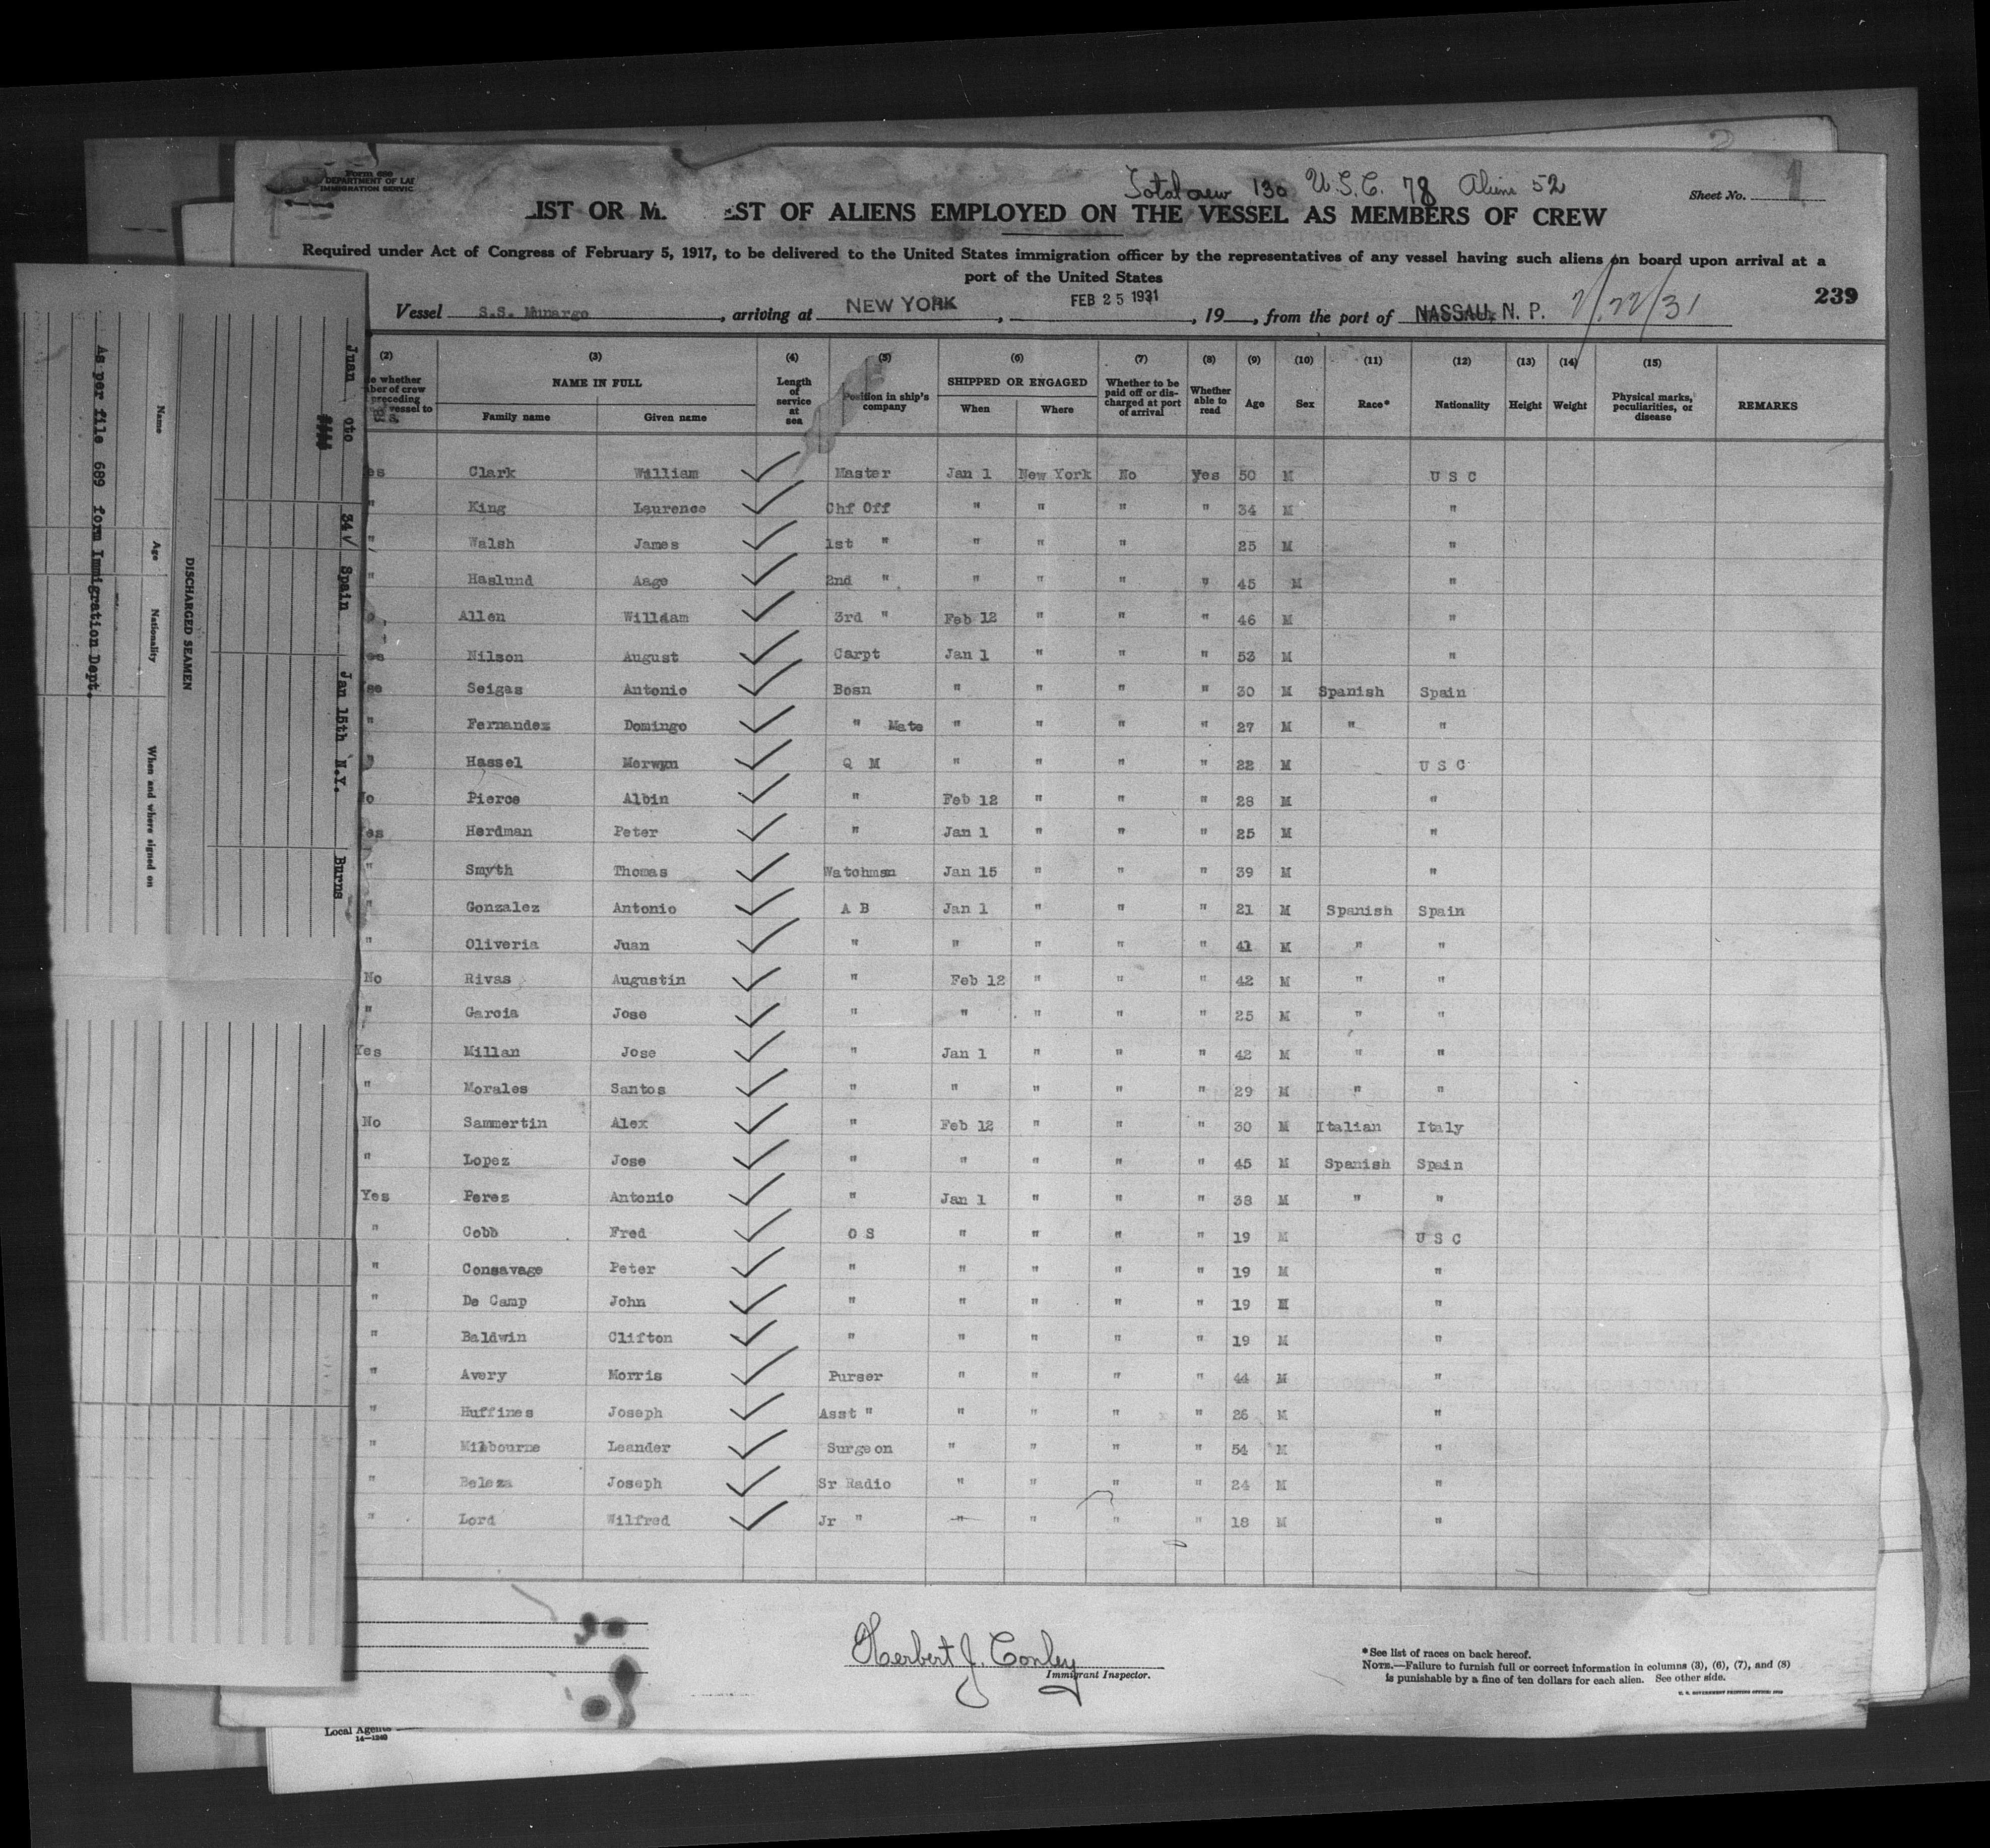 Total crew 130 U.S.C. 78 Aliens 52
Form 680
DEPARTMENT OF LAB
IMMIGRATION SERVIC
Sheet No. 1
LIST OR M EST OF ALIENS EMPLOYED ON THE VESSEL AS MEMBERS OF CREW
Required under Act of Congress of February 5, 1917, to be delivered to the United States immigration officer by the representatives of any vessel having such aliens on board upon arrival at a
port of the United States
239
Vessel S.S. Munargo, arriving at NEW YORK, FEB 25 1931, 19__, from the port of NASSAU, N. P. 2/22/31
(2) (3) (4) (5) (6) (7) (8) (9) (10) (11) (12) (13) (14) (15)
whether
ber of crew
preceding
vessel to
NAME IN FULL
Family name Given name
Length of service at sea
Position in ship's company
SHIPPED OR ENGAGED
When Where
Whether to be paid off or discharged at port of arrival
Whether able to read
Age Sex Race* Nationality Height Weight
Physical marks, peculiarities, or disease
REMARKS
es Clark William Master Jan 1 New York No Yes 50 M U S C
" King Laurence Chf Off " " " " 34 M "
" Walsh James 1st " " " " 25 M "
" Haslund Aage 2nd " " " " " 45 M "
Allen William 3rd " Feb 12 " " " 46 M "
es Nilson August Carpt Jan 1 " " " 53 M "
Seigas Antonio Bosn " " " " 30 M Spanish Spain
" Fernandez Domingo " Mate " " " " 27 M " "
Hassel Merwyn Q M " " " " 22 M U S C
o Pierce Albin " Feb 12 " " " 28 M "
es Herdman Peter " Jan 1 " " " 25 M "
" Smyth Thomas Watchman Jan 15 " " " 39 M "
" Gonzalez Antonio A B Jan 1 " " " 21 M Spanish Spain
" Oliveria Juan " " " " " 41 M " "
No Rivas Augustin " Feb 12 " " " 42 M " "
" Garcia Jose " " " " " 25 M " "
Yes Millan Jose " Jan 1 " " " 42 M " "
" Morales Santos " " " " " 29 M " "
No Sammertin Alex " Feb 12 " " " 30 M Italian Italy
" Lopez Jose " " " " " 45 M Spanish Spain
Yes Perez Antonio " Jan 1 " " " 38 M " "
" Cobb Fred O S " " " " 19 M U S C
" Consavage Peter " " " " " 19 M "
" De Camp John " " " " " 19 M "
" Baldwin Clifton " " " " " 19 M "
" Avery Morris Purser " " " " 44 M "
" Huffines Joseph Asst " " " " " 26 M "
" Milbourne Leander Surgeon " " " " 54 M "
" Beleza Joseph Sr Radio " " " " 24 M "
" Lord Wilfred Jr " " " " " 18 M "
Herbert J. Conley
Immigrant Inspector.
*See list of races on back hereof.
NOTE.—Failure to furnish full or correct information in columns (3), (6), (7), and (8)
is punishable by a fine of ten dollars for each alien. See other side.
U. S. GOVERNMENT PRINTING OFFICE
Local Agents
14—1240
Juan oto 34 Spain Jan 15th N.Y. Burns
DISCHARGED SEAMEN
Name Age Nationality When and where signed on
As per file 689 form Immigration Dept.